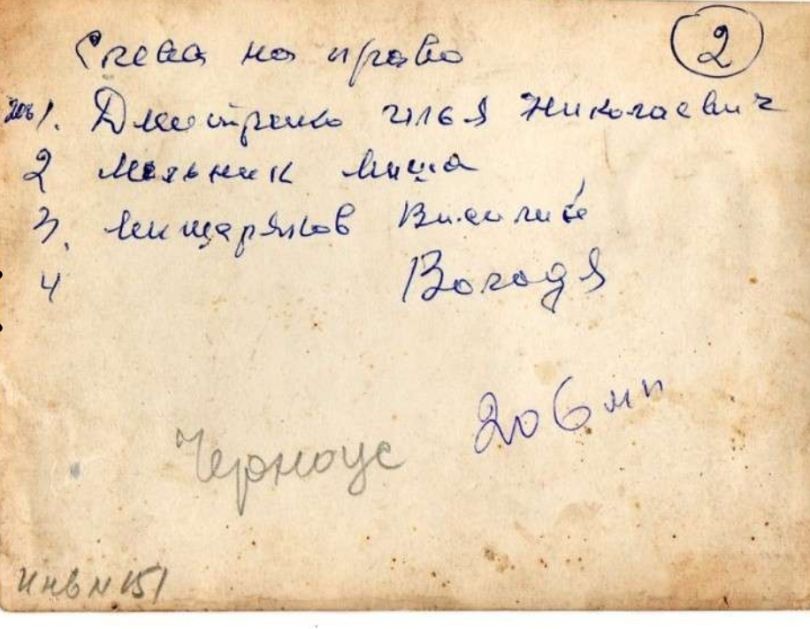 Слева на право
2
1. Дмитренко Илья Николаевич
2 Мельник Миша
3. Мищаряков Василий
4 Володя
206 мм
Черноус
инв N 151